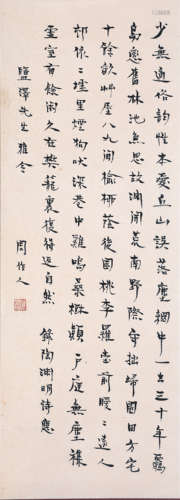 少無適俗韵惟本愛丘山誤落塵網中一去三十年羈
鳥戀舊林池魚思故淵開荒南野際守拙歸園田方宅
十餘畝艸屋八九間榆柳蔭後園桃李羅堂前曖曖遠人
邨依依墟里煙狗吠深巷中雞鳴桑樹顛戶庭無塵襍
虛室有餘閑久在樊籠裏復得返自然 錄陶淵明詩應
鹽澤先生雅令 周作人